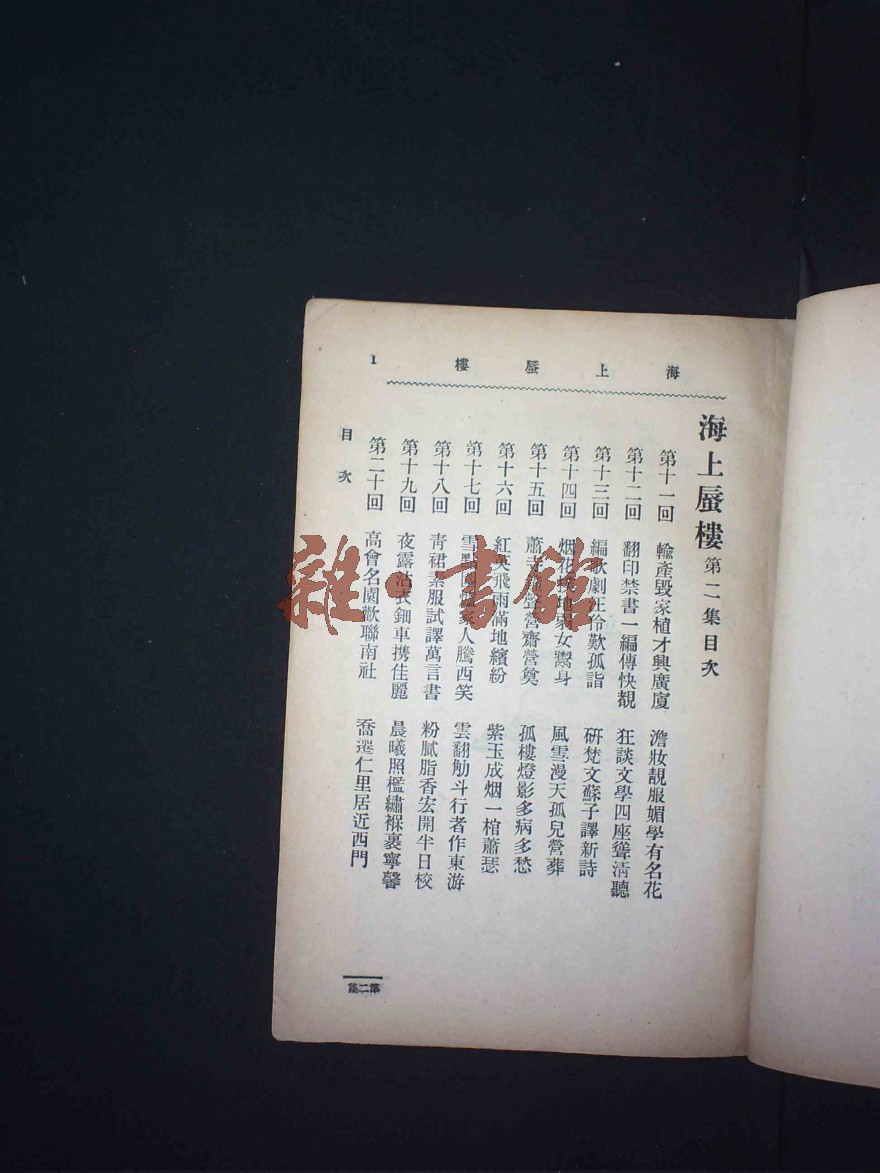 海上蜃樓
1
海上蜃樓 第二集目次
第十一回 輸產毀家植才興廣廈 澹妝靚服媚學有名花
第十二回 翻印禁書一編傳快覩 狂談文學四座聳清聽
第十三回 編歌劇汪伶歎孤詣 研梵文蘇子譯新詩
第十四回 烟花 女鬻身 風雪漫天孤兒營葬
第十五回 蕭寺 營齋營奠 孤樓燈影多病多愁
第十六回 紅英飛雨滿地繽紛 紫玉成烟一棺蕭瑟
第十七回 雪 家人騰西笑 雲翻觔斗行者作東游
第十八回 靑裙素服試譯萬言書 粉膩脂香宏開半日校
第十九回 夜露沾衣鈿車携佳麗 晨曦照檻繡褓裹寧馨
第二十回 高會名園歡聯南社 喬遷仁里居近西門
目次
第二集
雜·書館